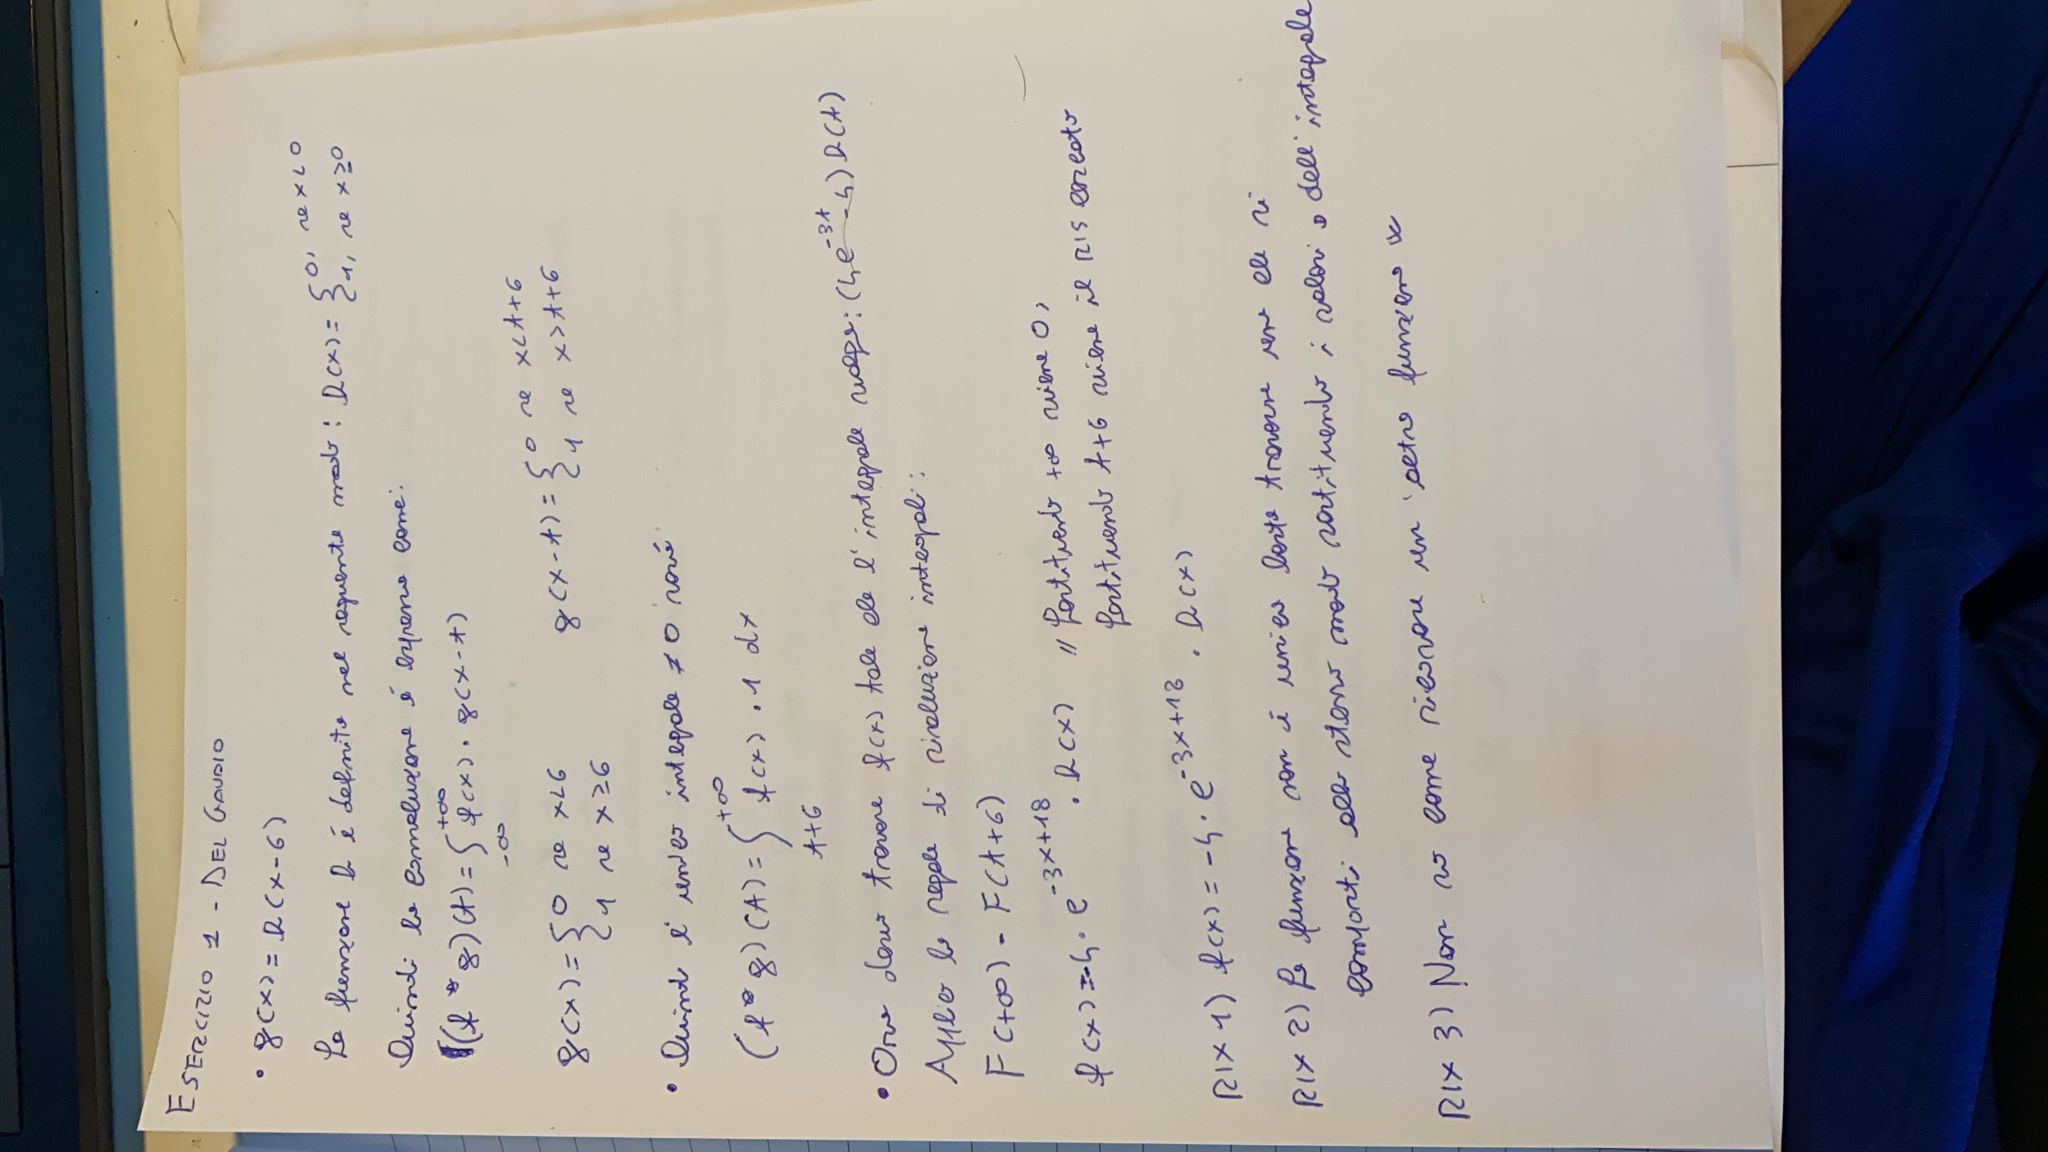 ESERCIZIO 1 - DEL GAUDIO
• g(x) = h(x-6)
La funzione h é definita nel seguente modo: h(x) = { 0, se x<0
1, se x≥0
Quindi la convoluzione é espressa come:
(f * g)(t) = ∫ f(x) · g(x-t)
+∞
-∞
g(x) = { 0 se x<6
1 se x≥6
g(x-t) = { 0 se x<t+6
1 se x>t+6
• Quindi l'unico integrale ≠ 0 sarà
(f * g)(t) = ∫ f(x) · 1 dx
+∞
t+6
• Ora devo trovare f(x) tale che l'integrale valga: (4e^-3t - 4) h(t)
Applico le regole di risoluzione integrali:
F(+∞) - F(t+6)
f(x) = -4 · e^-3x+18 · h(x) // Sostituendo +∞ viene 0,
Sostituendo t+6 viene il RIS cercato
RIX 1) f(x) = -4 · e^-3x+18 · h(x)
RIX 2) La funzione non é unica basta trovarne una che si
comporti allo stesso modo sostituendo i valori dell'integrale
RIX 3) Non so come ricavare un'altra funzione